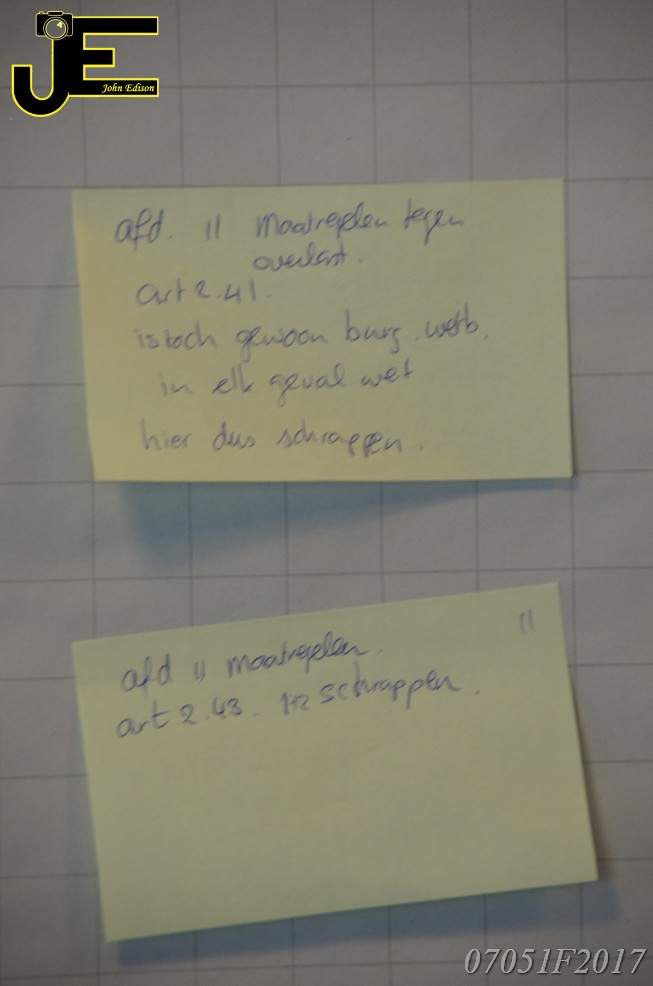 JE
John Edison
afd. 11 Maatregelen tegen
overlast.
art 2.41.
is toch gewoon burg. wetb.
in elk geval wet
hier dus schrappen.
11
afd 11 maatregelen.
art 2.43. 1+2 schrappen.
07051F2017